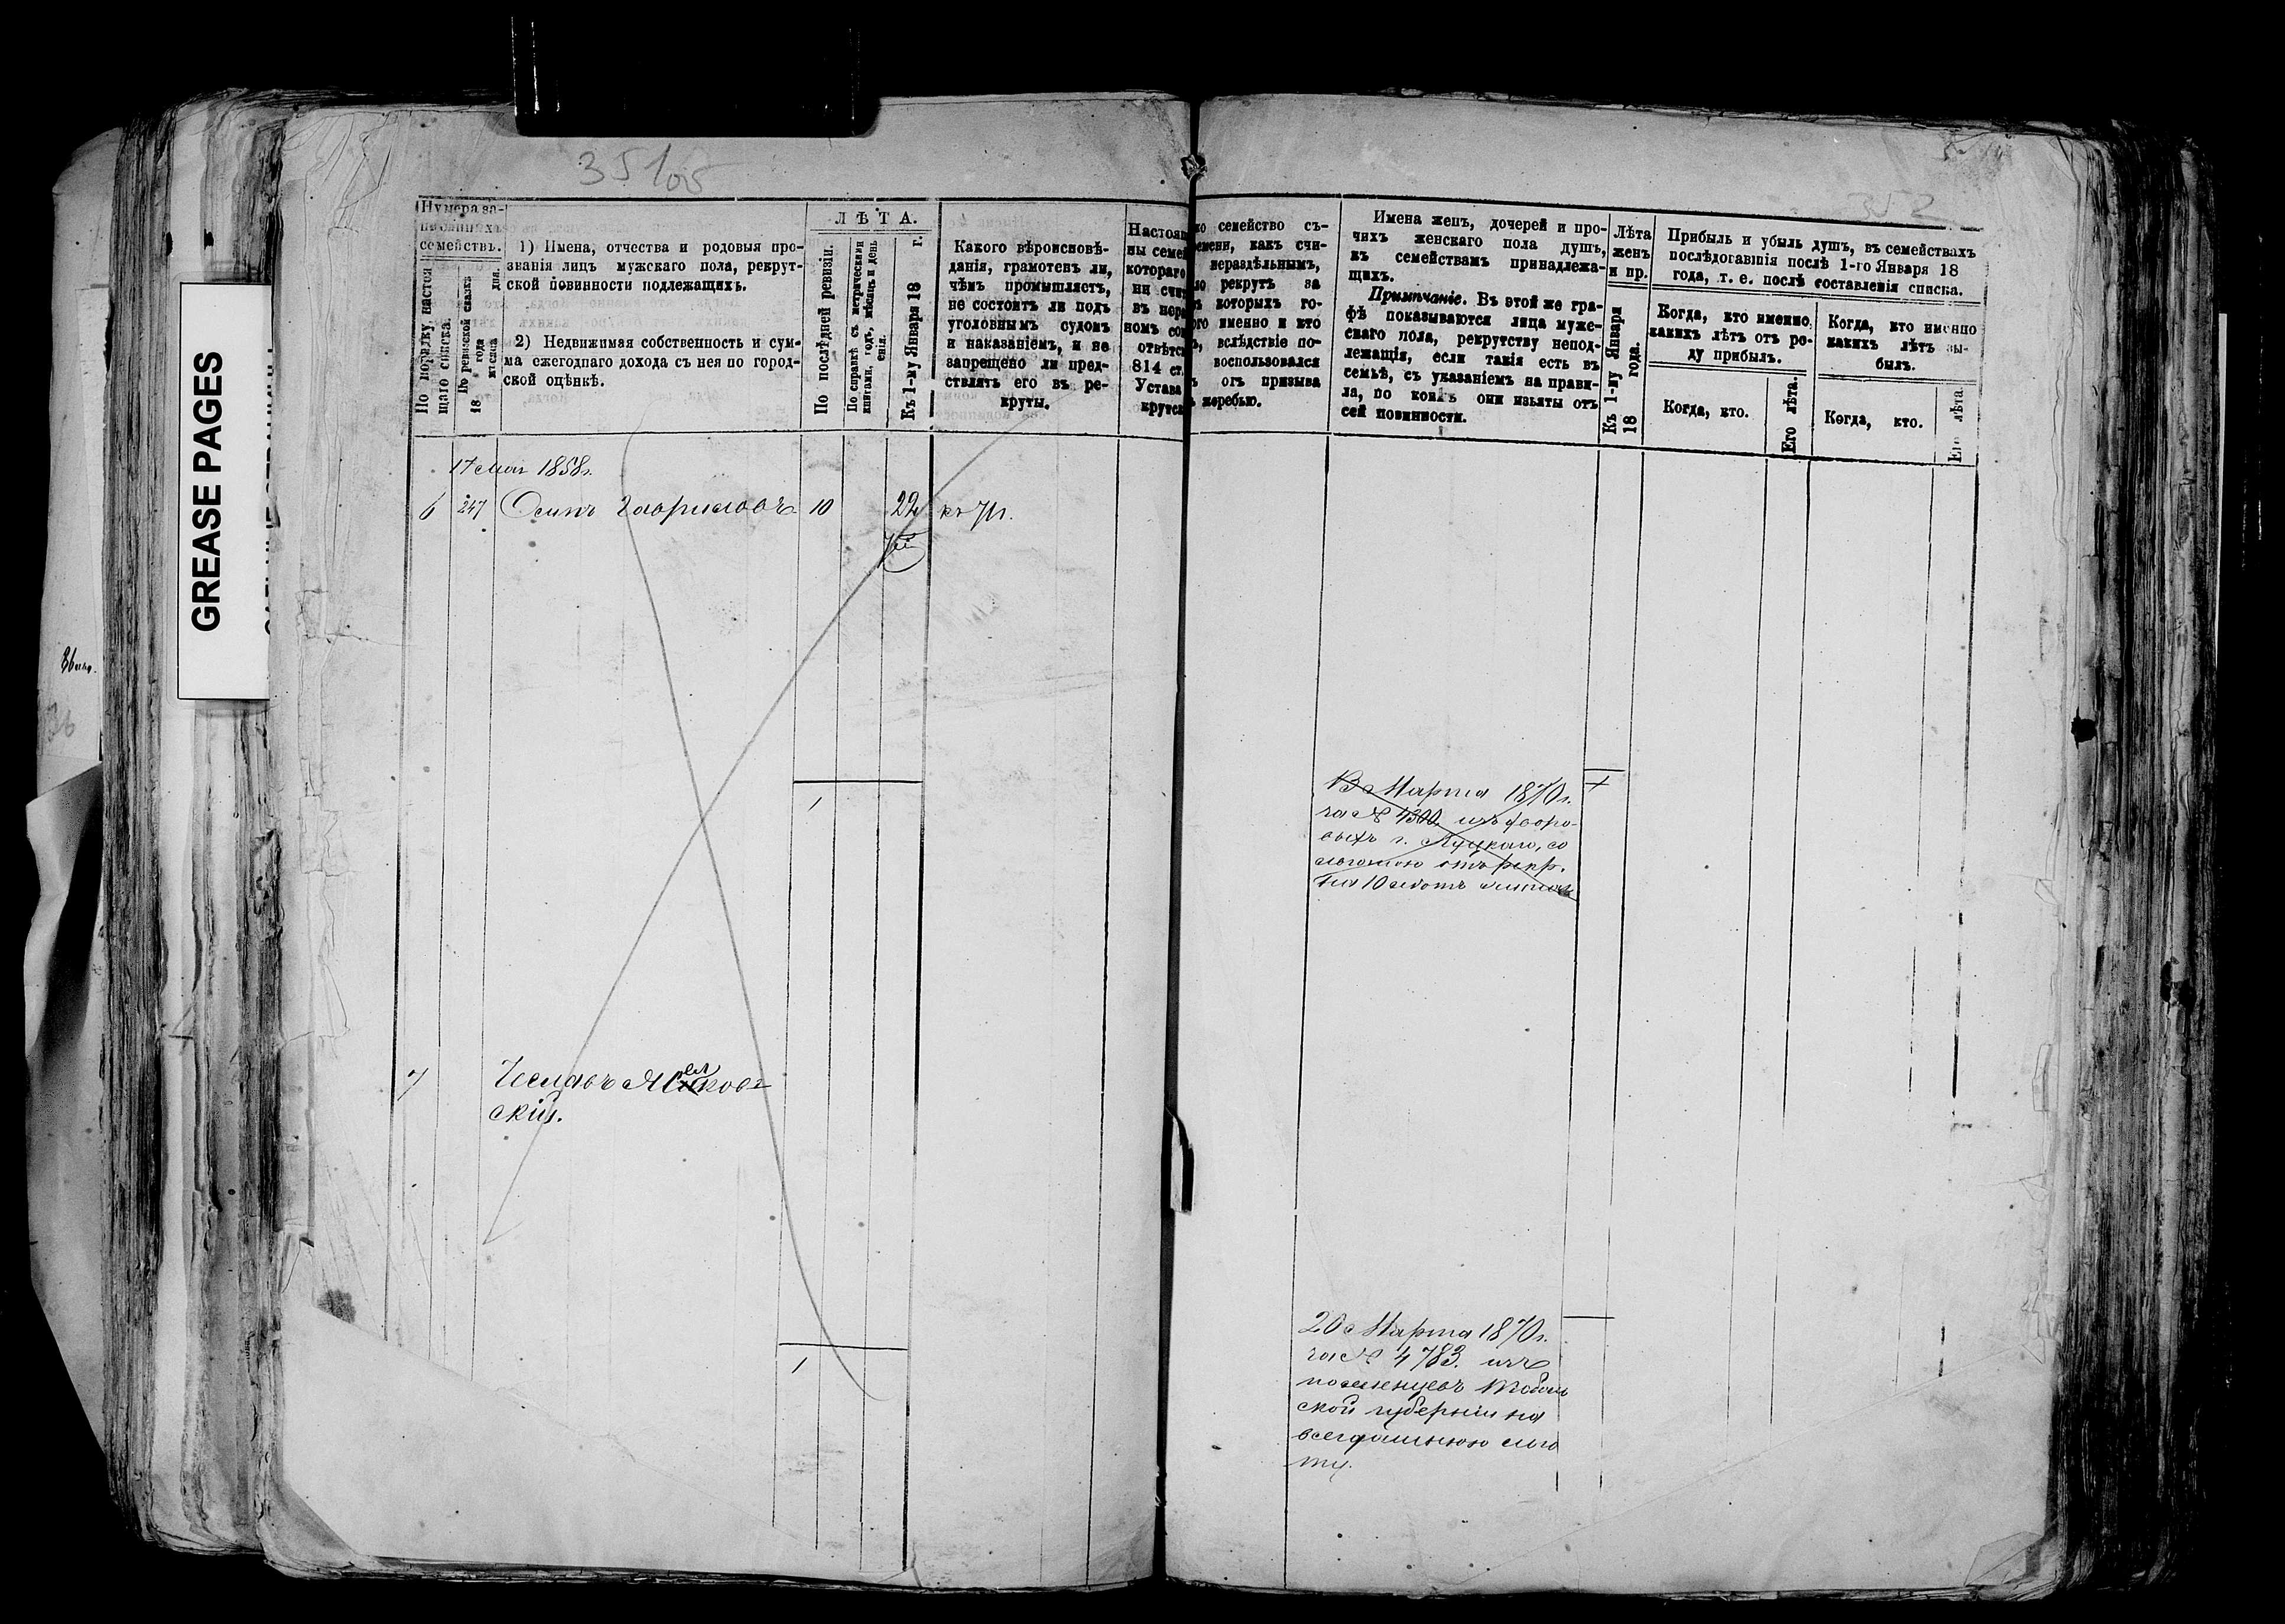 GREASE PAGES
35105
352
Нумера за-
писанныхъ
семействъ.
По порядку настоя
щаго списка.
По ревизской сказкѣ
18 года
мѣсяца дня.
1) Имена, отчества и родовыя про-
званія лицъ мужскаго пола, рекрут-
ской повинности подлежащихъ.
2) Недвижимая собственность и сум-
ма ежегоднаго дохода съ нея по город-
ской оцѣнкѣ.
ЛѢТА.
По послѣдней ревизіи.
По справкѣ съ метрическими
книгами, годъ, мѣсяцъ и день
Къ 1-му Января 18 г.
Какого вѣроисповѣ-
данія, грамотенъ ли,
чѣмъ промышляетъ,
не состоитъ ли подъ
уголовнымъ судомъ
и наказаніемъ, и не
запрещено ли пред-
ставлять его въ ре-
круты.
Настоящ
ны семей
котораго
ни счит
въ нера
номъ сос
отвѣтст
814 ст.
Устава
крутск
ко семейство съ-
емени, какъ счи-
нераздѣльнымъ,
ло рекрутъ за
ъ которыхъ го-
ого именно и кто
ъ, вслѣдствіе по-
воспользовался
ъ отъ призыва
ъ жеребью.
Имена женъ, дочерей и про-
чихъ женскаго пола душъ,
къ семействамъ принадлежа-
щихъ.
Примѣчаніе. Въ этой же гра-
фѣ показываются лица муже-
скаго пола, рекрутству непод-
лежащія, если такія есть въ
семьѣ, съ указаніемъ на прави-
ла, по коимъ они изъяты отъ
сей повинности.
Лѣта
женъ
и пр.
Къ 1-му Января
18 года.
Прибыль и убыль душъ, въ семействахъ
послѣдовавшія послѣ 1-го Января 18
года, т. е. послѣ составленія списка.
Когда, кто именно,
какихъ лѣтъ отъ ро-
ду прибылъ.
Когда, кто именно
какихъ лѣтъ вы-
былъ.
Когда, кто.
Его лѣта.
Когда, кто.
Его лѣта.
17 мая 1858г.
6 247 Осипъ Гавриловъ 10 22 къ 71г.
1
В Марта 1870г.
за № 4300. изъ дворо-
выхъ г. Луцкаго, со
льготою отъ рекр.
на 10 лѣтъ
7
ский.
1
20 Марта 1870г.
за № 4783. изъ
поселенцевъ Тоболь
ской губерніи на
всегдашнюю льго
ту.